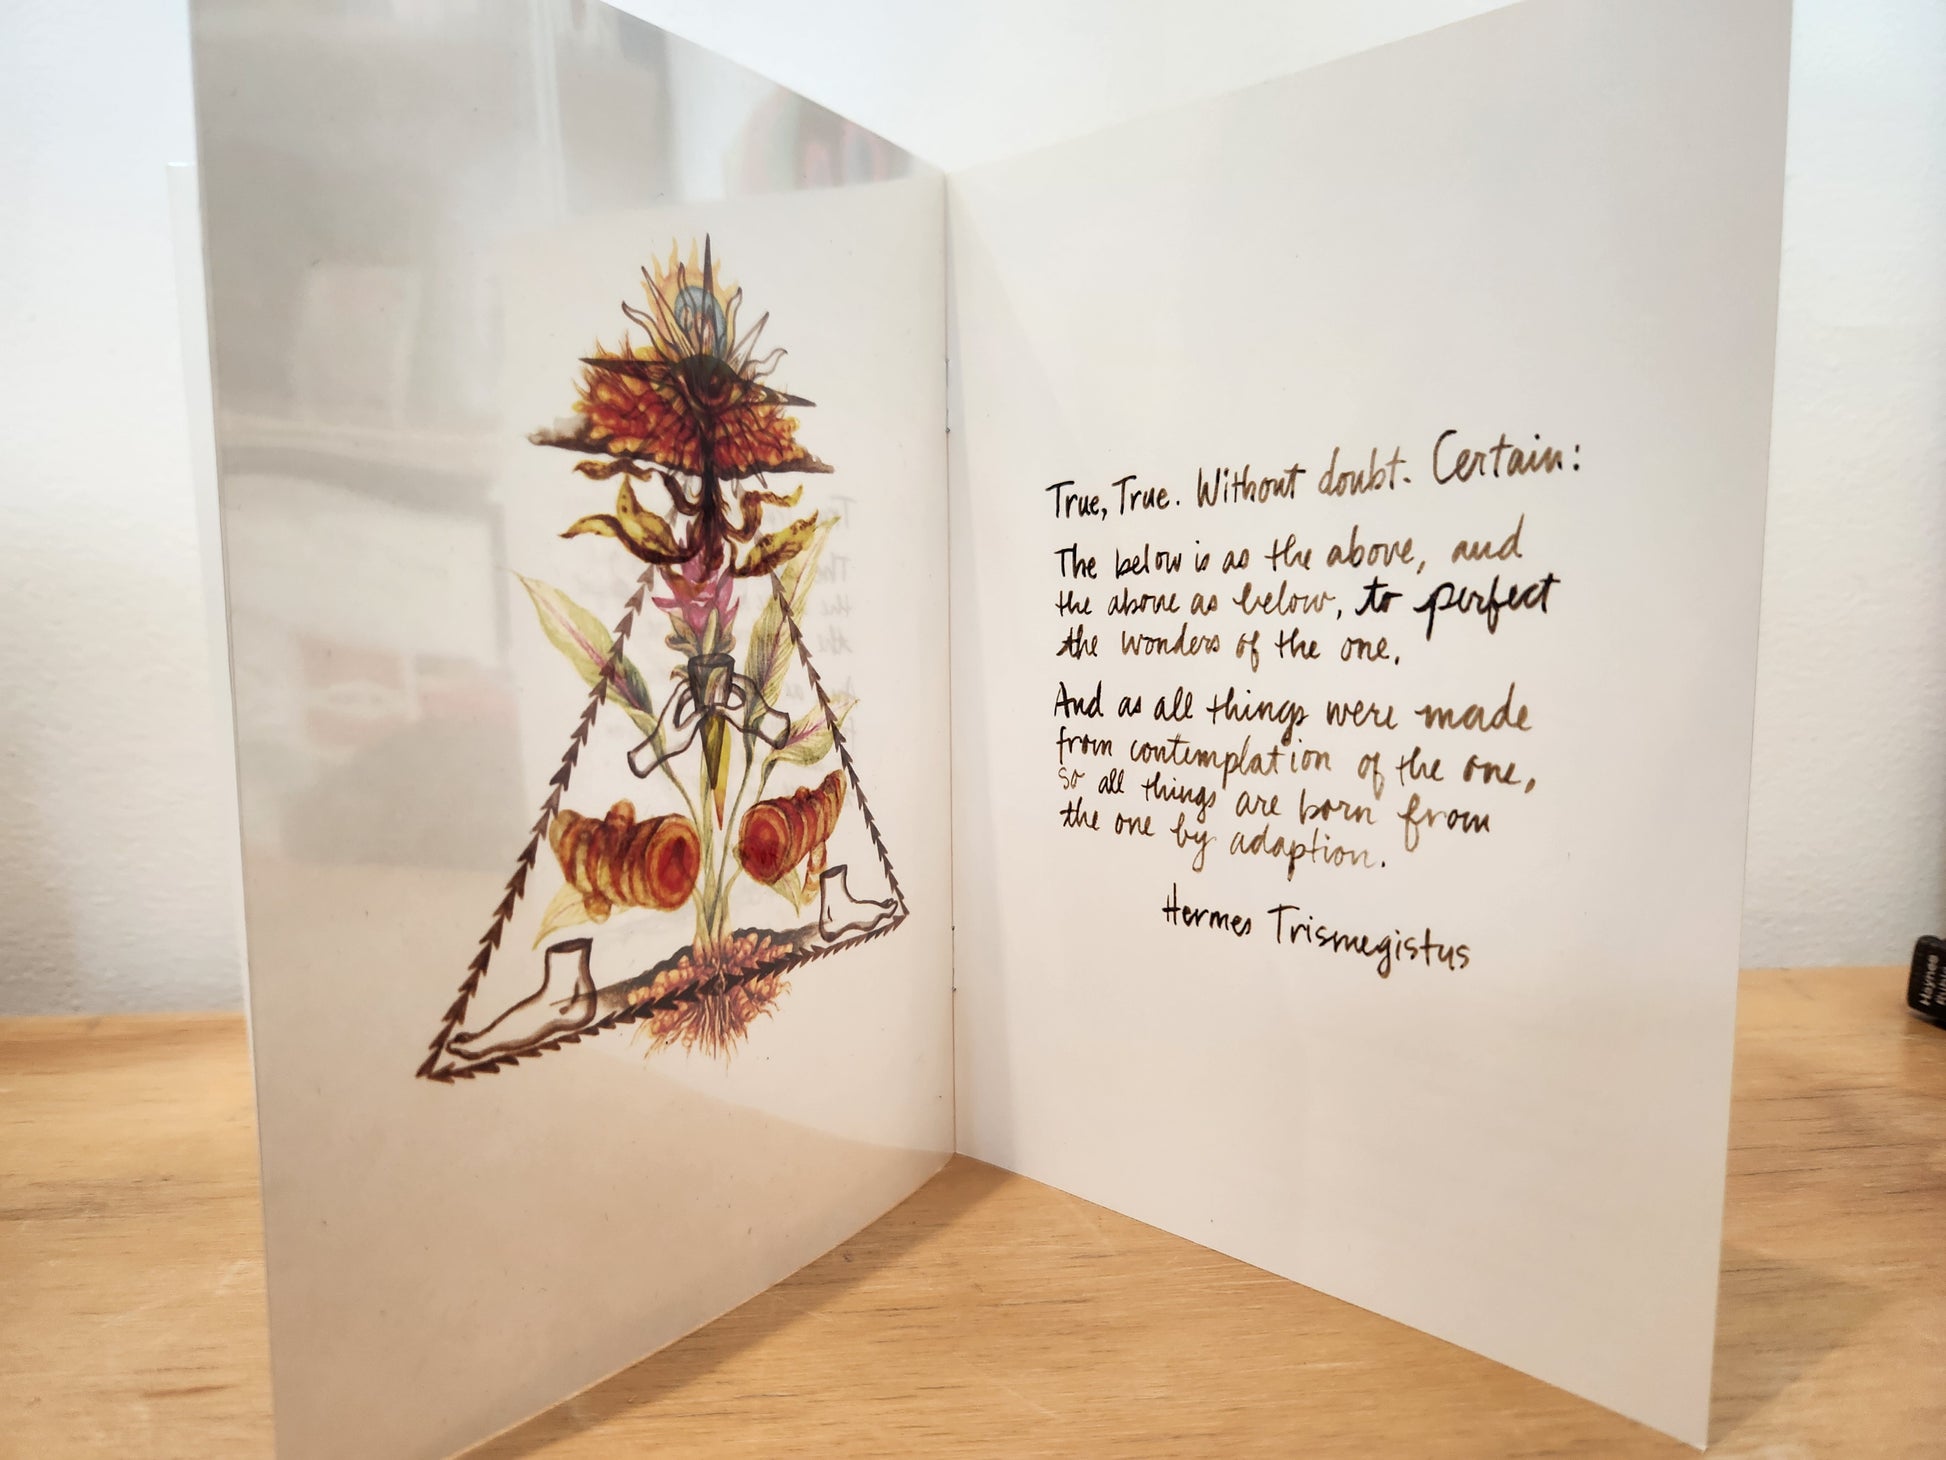 True, True. Without doubt. Certain:
The below is as the above, and
the above as below, to perfect
the wonders of the one.
And as all things were made
from contemplation of the one,
so all things are born from
the one by adaption.
Hermes Trismegistus
Haynes